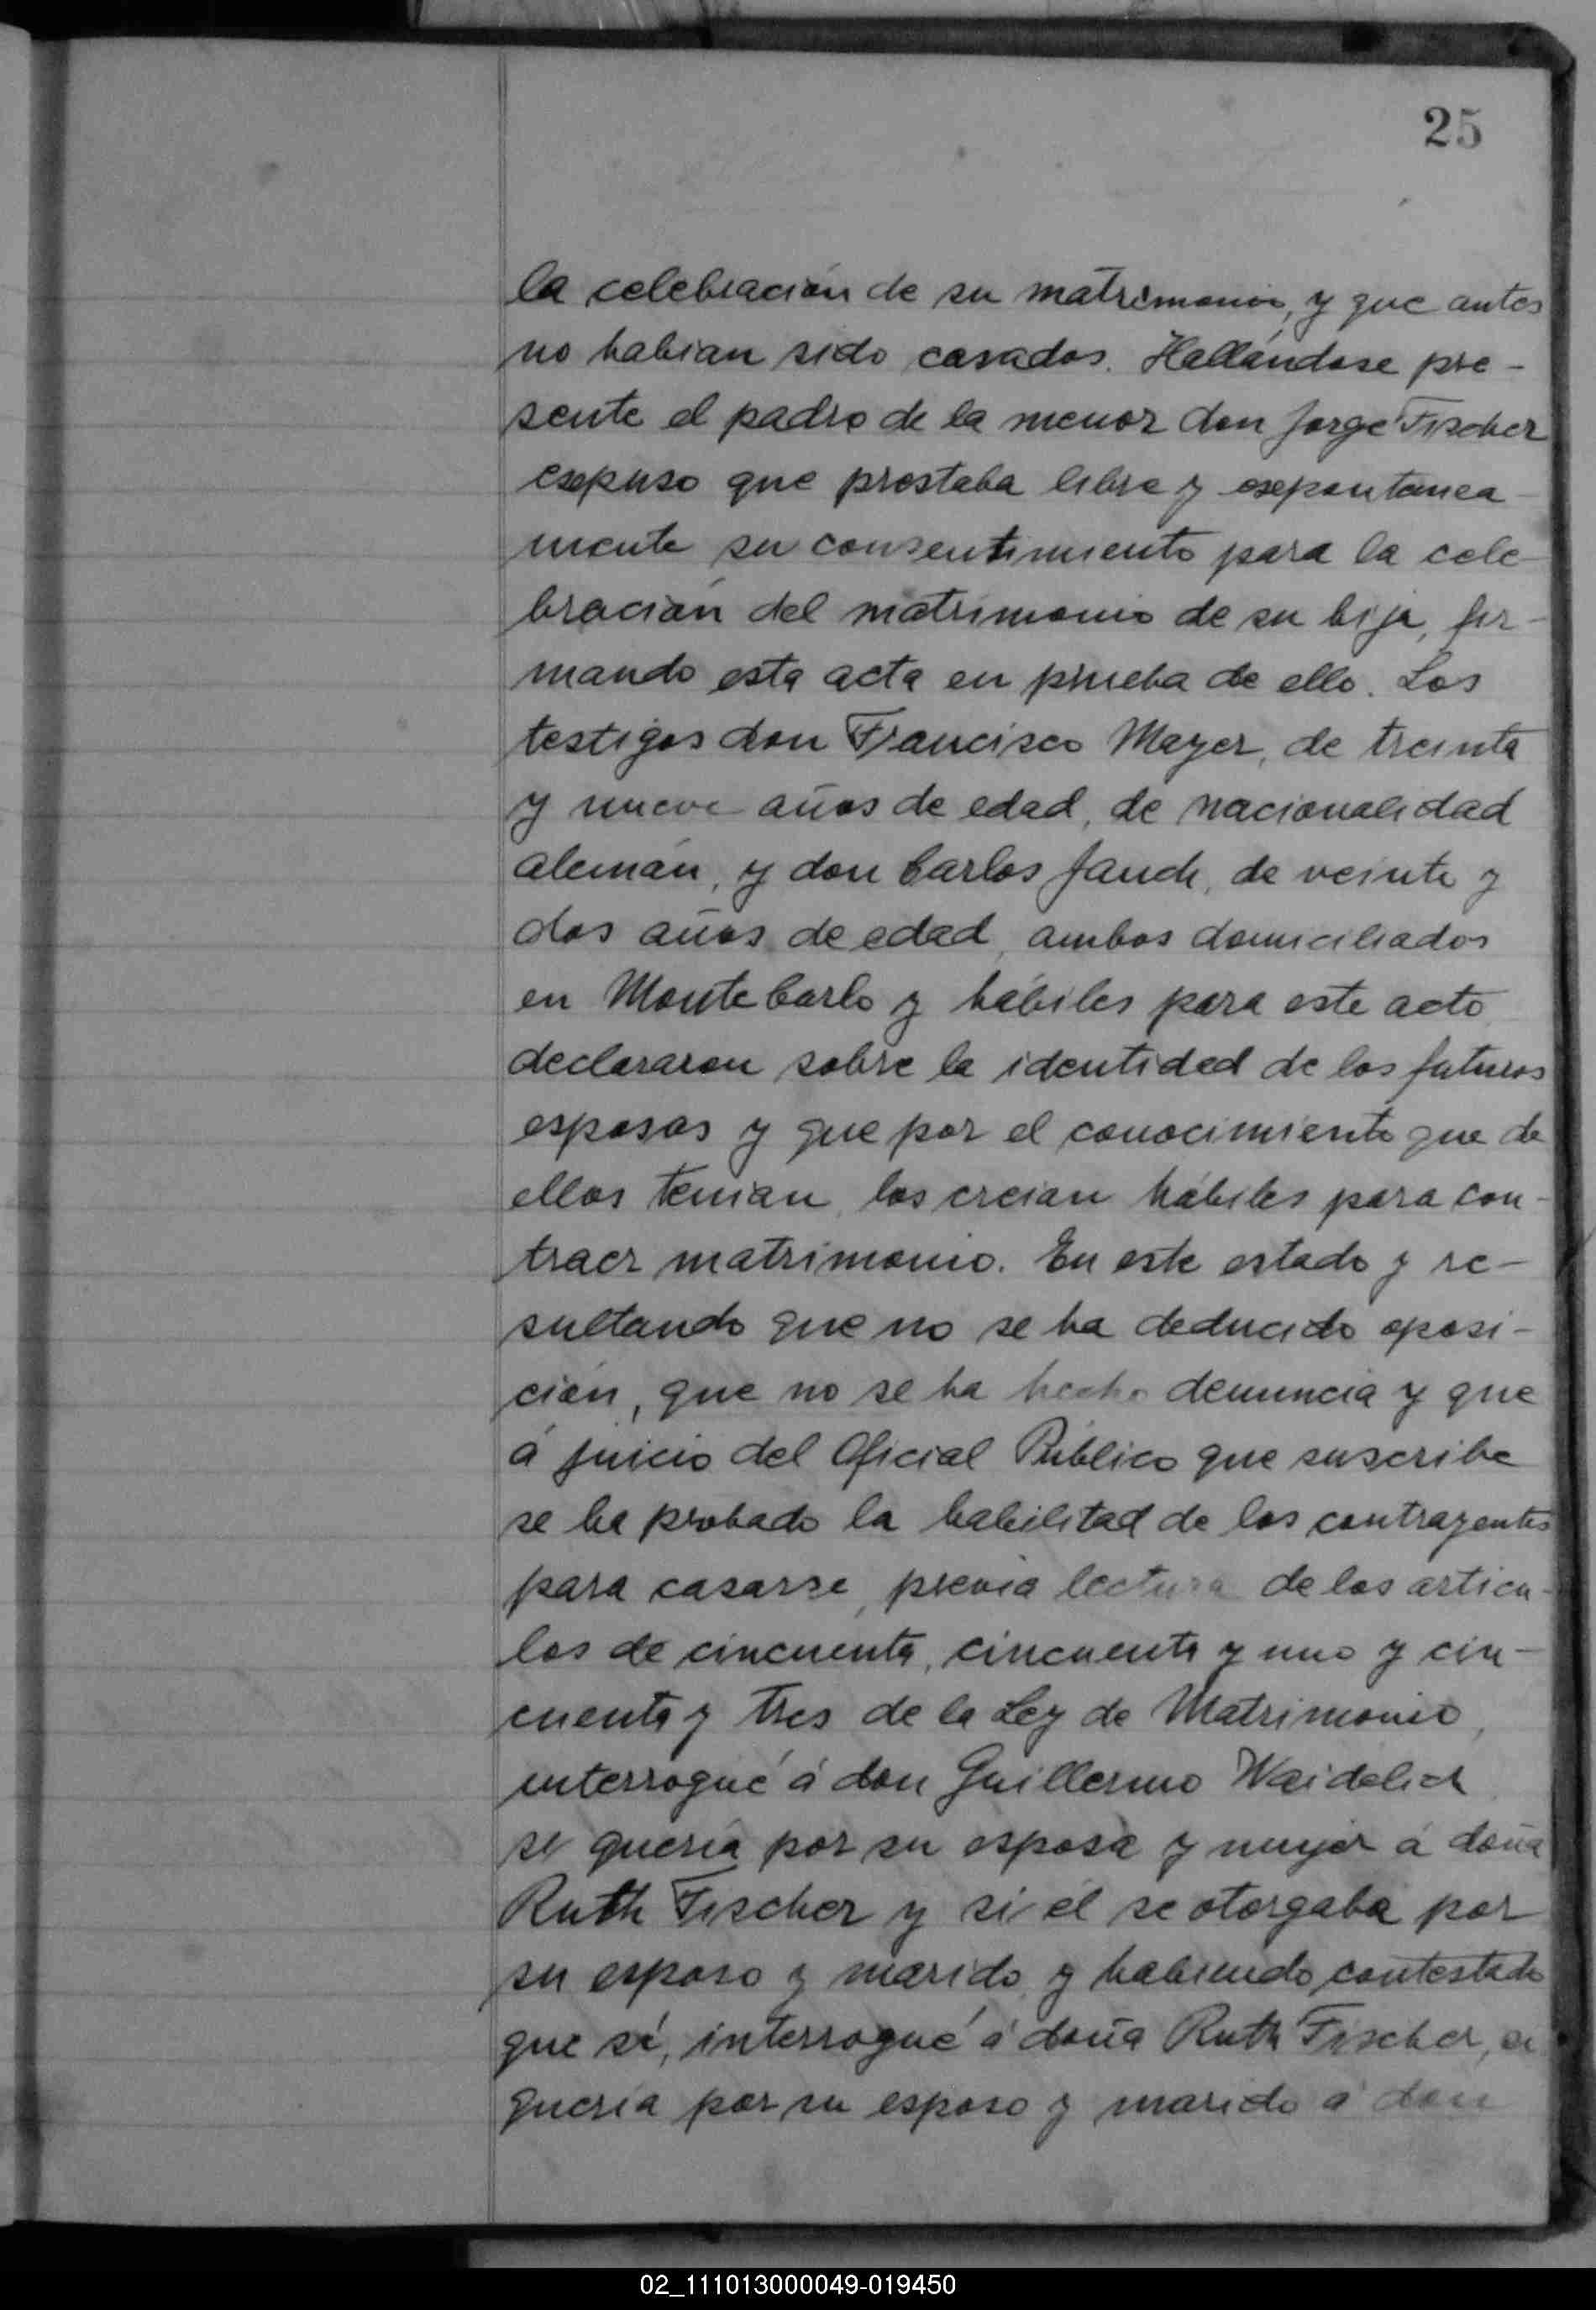 25
la celebración de su matrimonio, y que antes
no habian sido casados. Hallándose pre-
sente el padre de la menor don Jorge Fischer
expuso que prestaba libre y expontanea-
mente su consentimiento para la cele-
bración del matrimonio de su hija, fir-
mando esta acta en prueba de ello. Los
testigos don Francisco Mayer, de treinta
y nueve años de edad, de nacionalidad
alemán, y don Carlos Jauch, de veinte y
dos años de edad, ambos domiciliados
en Montecarlo y hábiles para este acto
declararon sobre la identidad de los futuros
esposos y que por el conocimiento que de
ellos tenian, los creian hábiles para con-
traer matrimonio. En este estado y re-
sultando que no se ha deducido oposi-
ción, que no se ha hecho denuncia y que
á juicio del Oficial Público que suscribe
se ha probado la habilitad de los contrayentes
para casarse, previa lectura de los articu-
los de cincuenta, cincuenta y uno y cin-
cuenta y tres de la Ley de Matrimonio,
interrogué á don Guillermo Waidelich
si quería por su esposa y mujer á doña
Ruth Fischer y si él se otorgaba por
su esposo y marido, y habiendo contestado
que sí, interrogué á doña Ruth Fischer, si
quería por su esposo y marido á don
02_111013000049-019450